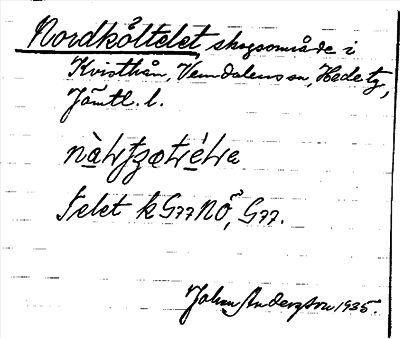 Nordkåttelet, skogsområde i
Kvisthån, Vemdalens sn, Hede tg,
Jämtl. l.
telet k G77 NÖ, G77.
Johan Andersson 1935.